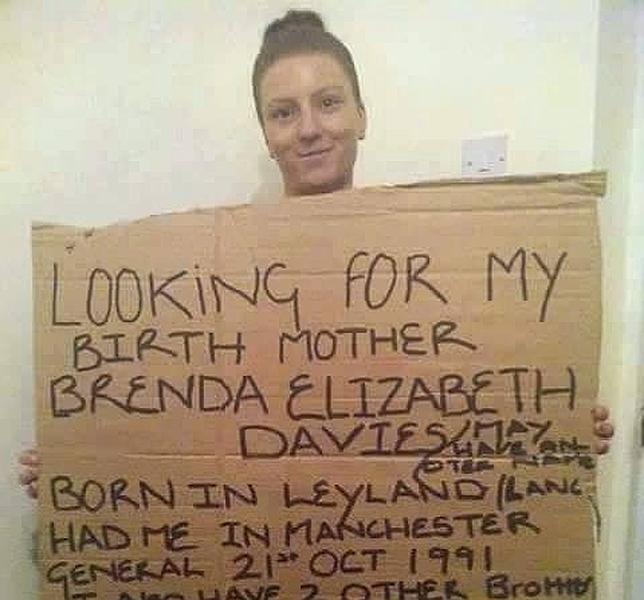 LOOKING FOR MY
BIRTH MOTHER
BRENDA ELIZABETH
DAVIES/MAY
HAVE AN
OTER NAME
BORN IN LEYLAND (LANC
HAD ME IN MANCHESTER
GENERAL 21ST OCT 1991
I ALSO HAVE 2 OTHER